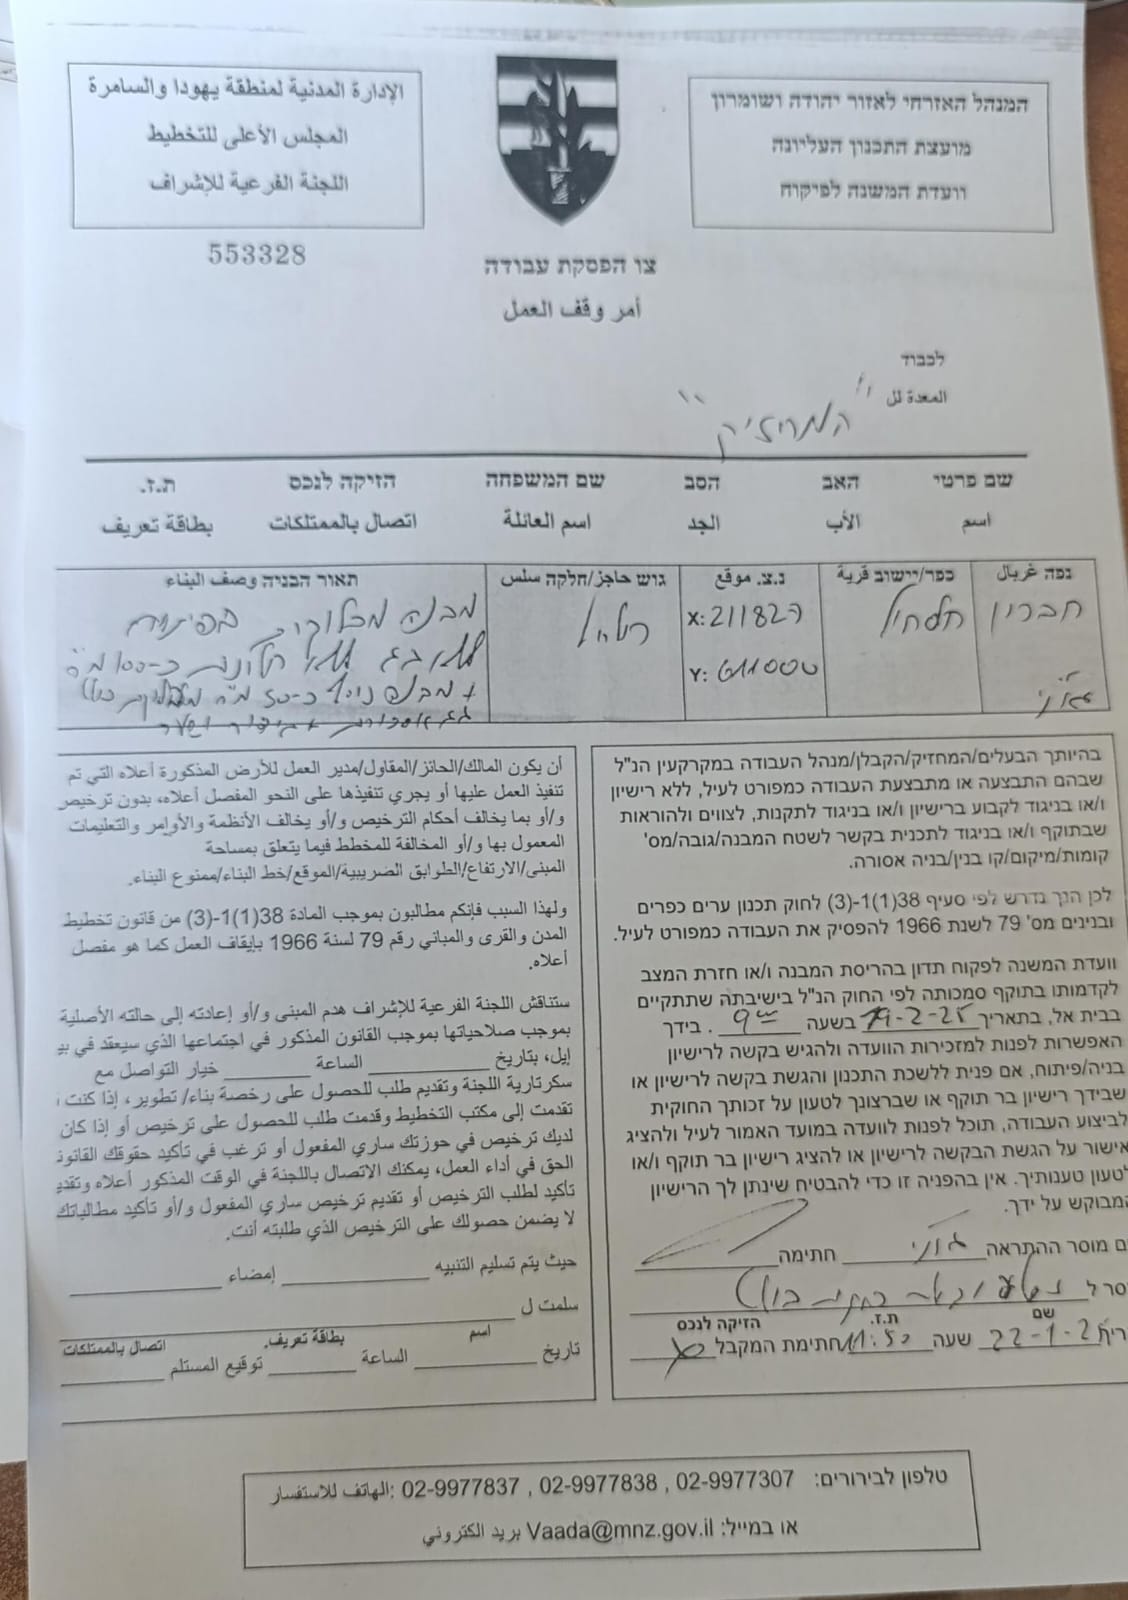 המנהל האזרחי לאזור יהודה ושומרון
מועצת התכנון העליונה
וועדת המשנה לפיקוח
الإدارة المدنية لمنطقة يهودا والسامرة
المجلس الأعلى للتخطيط
اللجنة الفرعية للإشراف
553328
צו הפסקת עבודה
أمر وقف العمل
לכבוד
المعدة لل
"המחזיק"
שם פרטי האב הסב שם המשפחה הזיקה לנכס ת.ז.
اسم الأب الجد اسم العائلة اتصال بالممتلكات بطاقة تعريف
נפה غربال כפר/יישוב قرية נ.צ. موقع גוש حاجز/חלקה سلس תאור הבניה وصف البناء
חברון חלחול X: 211827 Y: 611000
מבנה מבלוקים
ג'וני
+ מבנה נוסף כ-50 מ"ר
בהיותך הבעלים/המחזיק/הקבלן/מנהל העבודה במקרקעין הנ"ל
שבהם התבצעה או מתבצעת העבודה כמפורט לעיל, ללא רישיון
ו/או בניגוד לקבוע ברישיון ו/או בניגוד לתקנות, לצווים ולהוראות
שבתוקף ו/או בניגוד לתכנית בקשר לשטח המבנה/גובה/מס'
קומות/מיקום/קו בנין/בניה אסורה.
לכן הנך נדרש לפי סעיף 38(1)1-(3) לחוק תכנון ערים כפרים
ובנינים מס' 79 לשנת 1966 להפסיק את העבודה כמפורט לעיל.
וועדת המשנה לפקוח תדון בהריסת המבנה ו/או חזרת המצב
לקדמותו בתוקף סמכותה לפי החוק הנ"ל בישיבתה שתתקיים
בבית אל, בתאריך 19-2-25 בשעה 9:00. בידך
האפשרות לפנות למזכירות הוועדה ולהגיש בקשה לרישיון
בניה/פיתוח, אם פנית ללשכת התכנון והגשת בקשה לרישיון או
שבידך רישיון בר תוקף או שברצונך לטעון על זכותך החוקית
לביצוע העבודה, תוכל לפנות לוועדה במועד האמור לעיל ולהציג
אישור על הגשת הבקשה לרישיון או להציג רישיון בר תוקף ו/או
לטעון טענותיך. אין בהפניה זו כדי להבטיח שינתן לך הרישיון
המבוקש על ידך.
ם מוסר ההתראה ג'וני חתימה
סר ל
שם ת.ז. הזיקה לנכס
ריך 22-1-25 שעה 11:50 חתימת המקבל
أن يكون المالك/الحائز/المقاول/مدير العمل للأرض المذكورة أعلاه التي تم
تنفيذ العمل عليها أو يجري تنفيذها على النحو المفصل أعلاه، بدون ترخيص
و/أو بما يخالف أحكام الترخيص و/أو يخالف الأنظمة والأوامر والتعليمات
المعمول بها و/أو المخالفة للمخطط فيما يتعلق بمساحة
المبنى/الارتفاع/الطوابق الضريبية/الموقع/خط البناء/ممنوع البناء.
ولهذا السبب فإنكم مطالبون بموجب المادة 38(1)1-(3) من قانون تخطيط
المدن والقرى والمباني رقم 79 لسنة 1966 بإيقاف العمل كما هو مفصل
أعلاه.
ستناقش اللجنة الفرعية للإشراف هدم المبنى و/أو إعادته إلى حالته الأصلية
بموجب صلاحياتها بموجب القانون المذكور في اجتماعها الذي سيعقد في بي
إيل، بتاريخ الساعة خيار التواصل مع
سكرتارية اللجنة وتقديم طلب للحصول على رخصة بناء/ تطوير، إذا كنت
تقدمت إلى مكتب التخطيط وقدمت طلب للحصول على ترخيص أو إذا كان
لديك ترخيص في حوزتك ساري المفعول أو ترغب في تأكيد حقوقك القانوذ
الحق في أداء العمل، يمكنك الاتصال باللجنة في الوقت المذكور أعلاه وتقدي
تأكيد لطلب الترخيص أو تقديم ترخيص ساري المفعول و/أو تأكيد مطالباتك
لا يضمن حصولك على الترخيص الذي طلبته أنت.
حيث يتم تسليم التنبيه إمضاء
سلمت ل
اسم بطاقة تعريف. اتصال بالممتلكات
تاريخ الساعة توقيع المستلم
טלפון לבירורים: 02-9977307 , 02-9977838 , 02-9977837 :الهاتف للاستفسار
או במייל: Vaada@mnz.gov.il بريد الكتروني